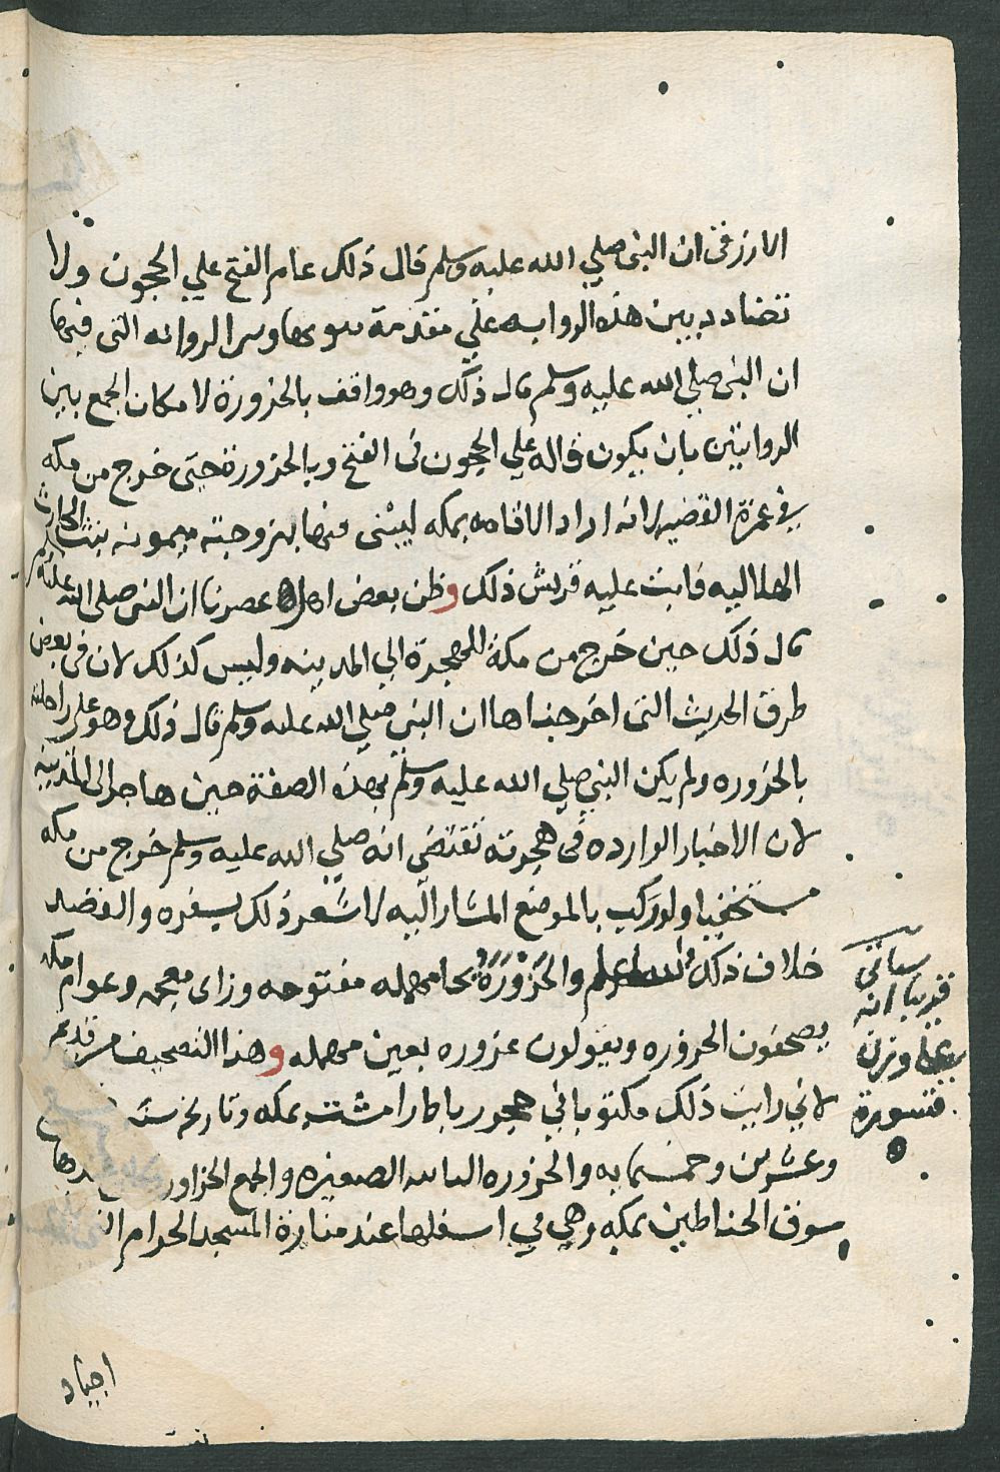 الازرقى ان النبى صلي الله عليه وسلم قال ذلك عام الفتح علي الحجون ولا
تضادد بين هذه الروايه علي مقدمة وبين الروايه التى فيها
ان النبى صلي الله عليه وسلم قال ذلك وهو واقف بالحزورة لامكان الجمع بين
الروايتين بان يكون قاله علي الحجون فى الفتح وبالحزورة حتى خرج من مكه
في عمرة القضيه لانه اراد الاقامه بمكه ليبنى فيها بزوجته ميمونه بنت الحارث
الهلاليه فابت عليه قريش ذلك وظن بعض اهل عصرنا ان النبى صلى الله عليه وسلم
قال ذلك حين خرج من مكة للهجرة الي المدينه وليس كذلك لان فى بعض
طرق الحديث التى اخرجناها ان النبى صلي الله عليه وسلم قال ذلك وهو على راحلته
بالحزوره ولم يكن النبي صلي الله عليه وسلم بهذه الصفة حين هاجر الى المدينه
لان الاخبار الوارده فى هجرته تقتضى انه صلي الله عليه وسلم خرج من مكه
مستخفيا ولو ركب بالموضع المشار اليه لاشعر ذلك بسفره والقصد
خلاف ذلك والله اعلم والحَزْوَرَة بحا مهمله مفتوحه وزاى معجمه وعوام مكه
يصحفون الحزوره ويقولون عزوره بعين مهمله وهذا التصحيف من قديم
لاني رايت ذلك مكتوبا في حجر رباط رامشت بمكه وتاريخه سنة
وعشرين وخمسمايه والحزوره الصغيره والجمع الحزاور
سوق الحناطين بمكه وهي في اسفلها عند منارة المسجد الحرام
سياتى
قريبا انه
بها وزن
قسورة
اجياد